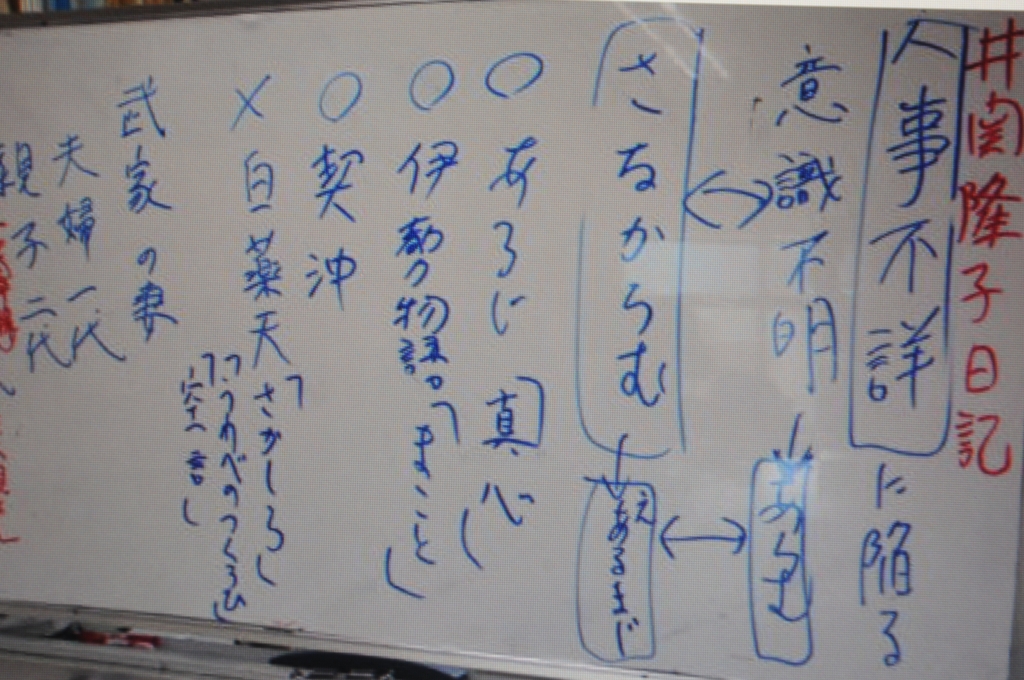 井関隆子日記
人事不詳に陥る
意識不明→あらむ
さるなからむ→えあるまじ
○あるじ「真心」
○伊勢物語。「まこと」
○契沖
×白薬天「さかしら」
「うわべのつくろひ」
武家の妻
夫婦一代
親子二代